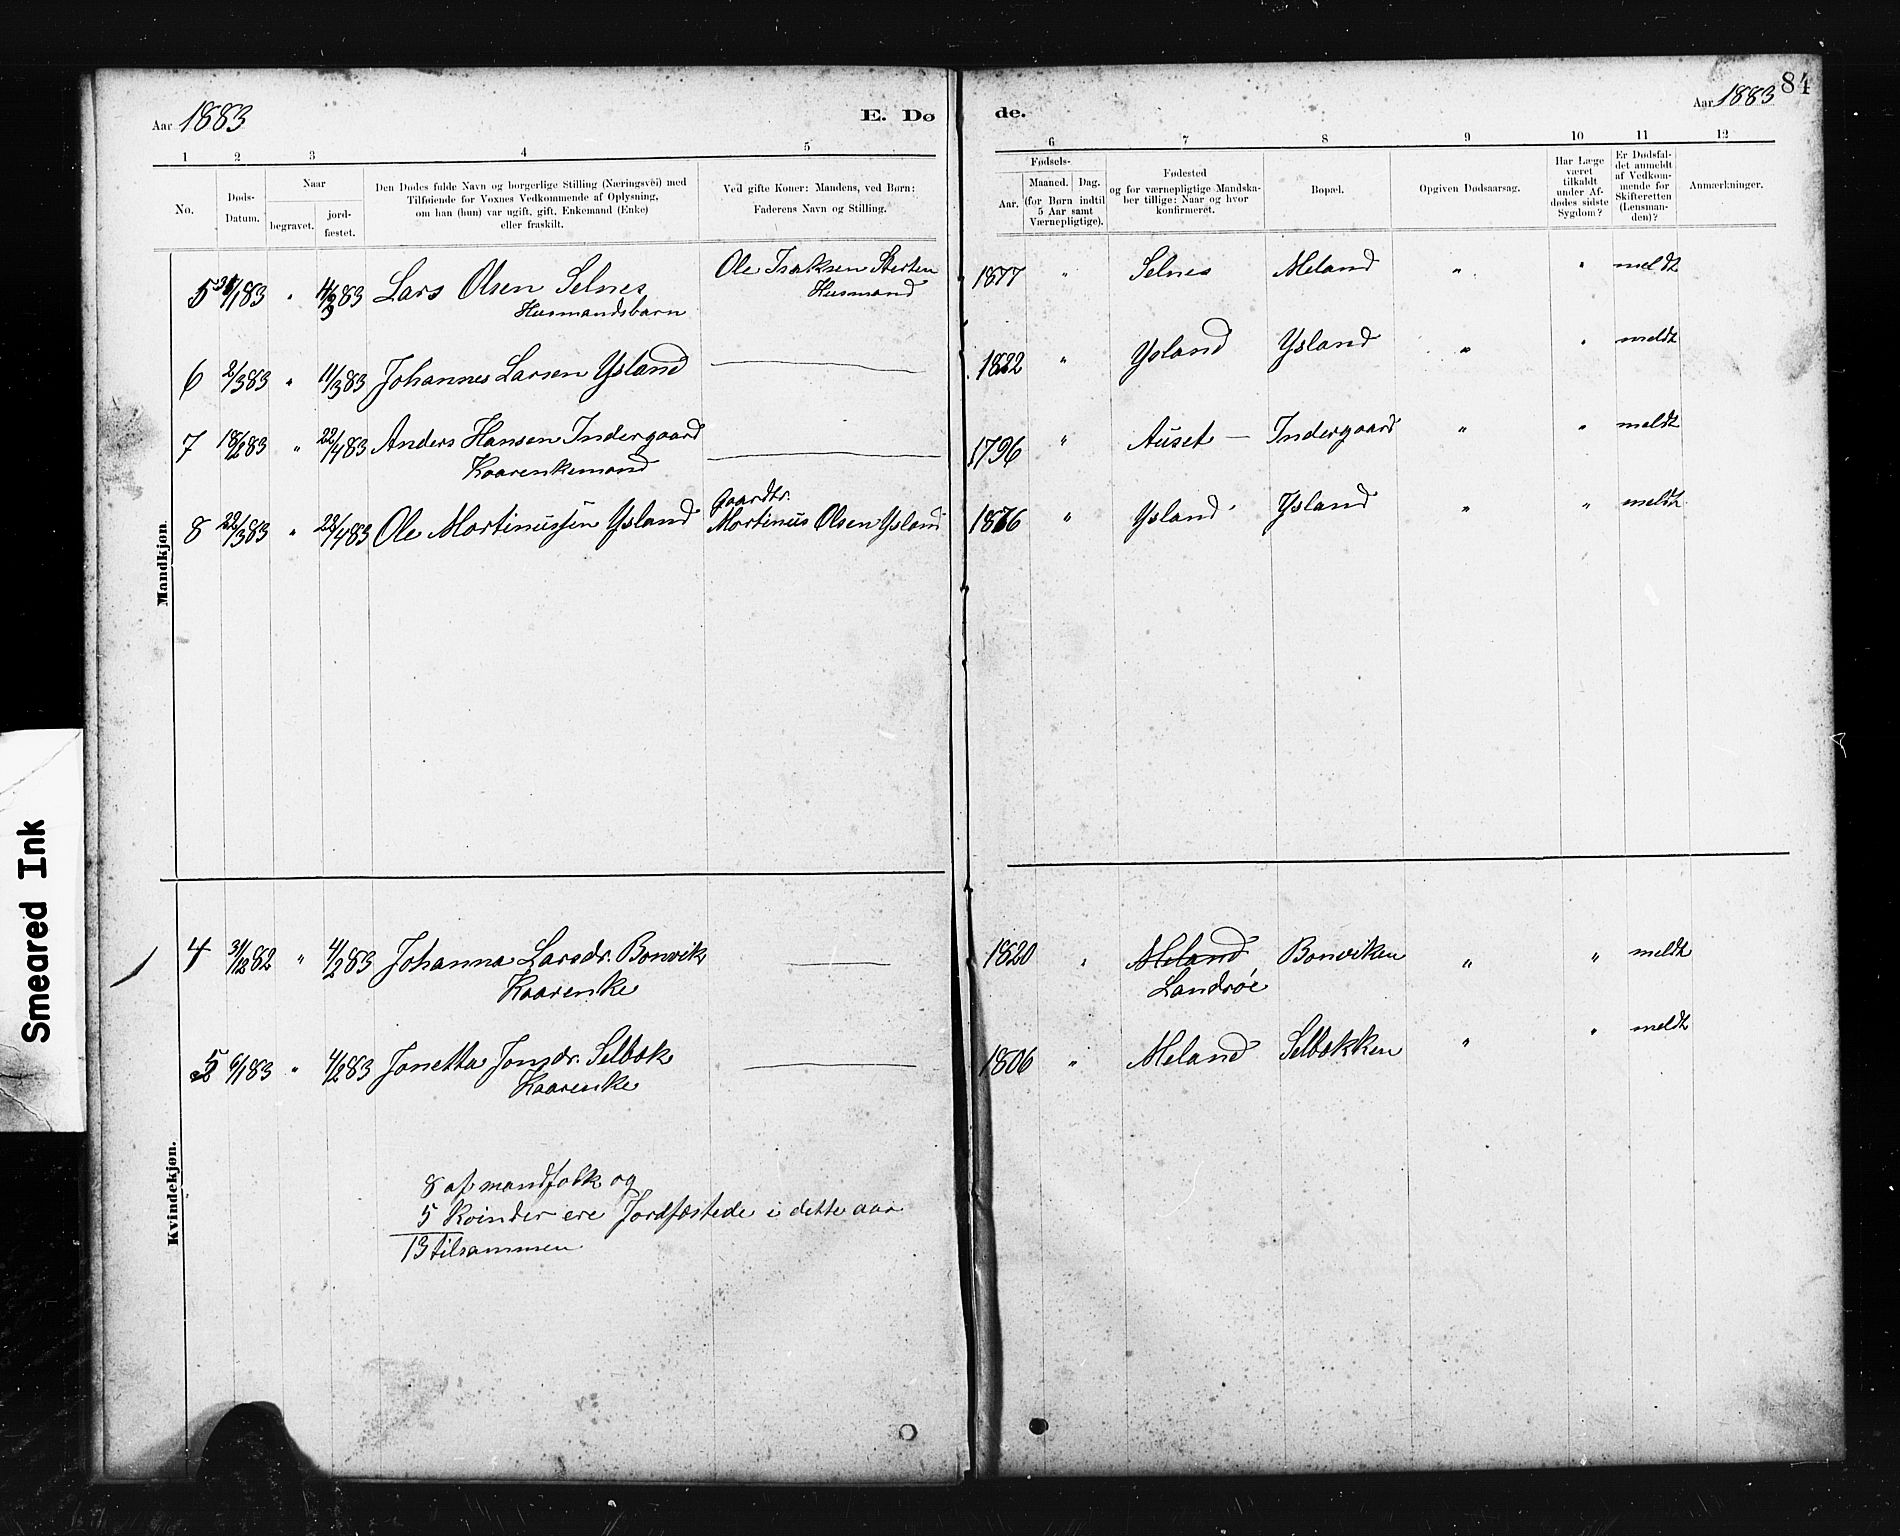 Aar 1883 E. Dø
de. Aar 1883 84
1 2 3 4 5 6 7 8 9 10 11 12
No.
Døds-
Datum.
Naar
begravet.
jord-
fæstet.
Den Dødes fulde Navn og borgerlige Stilling (Næringsvei) med
Tilføiende for Voxnes Vedkommende af Oplysning,
om han (hun) var ugift, gift, Enkemand (Enke)
eller fraskilt.
Ved gifte Koner: Mandens, ved Børn:
Faderens Navn og Stilling.
Fødsels-
Aar.
Maaned. Dag.
(for Børn indtil
5 Aar samt
Værnepligtige).
Fødested
og for værnepligtige Mandska-
ber tillige: Naar og hvor
konfirmeret.
Bopæl.
Opgiven Dødsaarsag.
Har Læge
været
tilkaldt
under Af-
dødes sidste
Sygdom?
Er Dødsfal-
det anmeldt
af Vedkom-
mende for
Skifteretten
(Lensman-
den)?
Anmærkninger.
Mandkjøn.
5 31/1 83 " 4/3 83 Lars Olsen Selnes Ole Isaksen 1877 " Selnes Meland " " meldt
Husmandsbarn Husmand
6 2/3 83 " 11/3 83 Johannes Larsen Ysland 1822 " Ysland Ysland " " meldt
7 18/2 83 " 22/4 83 Anders Hansen Indergaard 1796 " Auset — Indergaard " " meldt
Kaarenkemand
Gaardbr.
8 22/3 83 " 22/4 83 Ole Martinussen Ysland Martinus Olsen Ysland 1876 " Ysland Ysland " " meldt
Kvindekjøn.
4 31/12 82 " 4/2 83 Johanna Larsdr. Bonvik 1820 " Meland Bonviken " " meldt
Kaarenke Landrøe
5 6/1 83 " 4/2 83 Jonetta Jonsdr. Selbæk 1806 " Meland Selbækken " " meldt
Kaarenke
8 af mandfolk og
5 kvinder ere Jordfæstede i dette aar
13 tilsammen
Smeared Ink